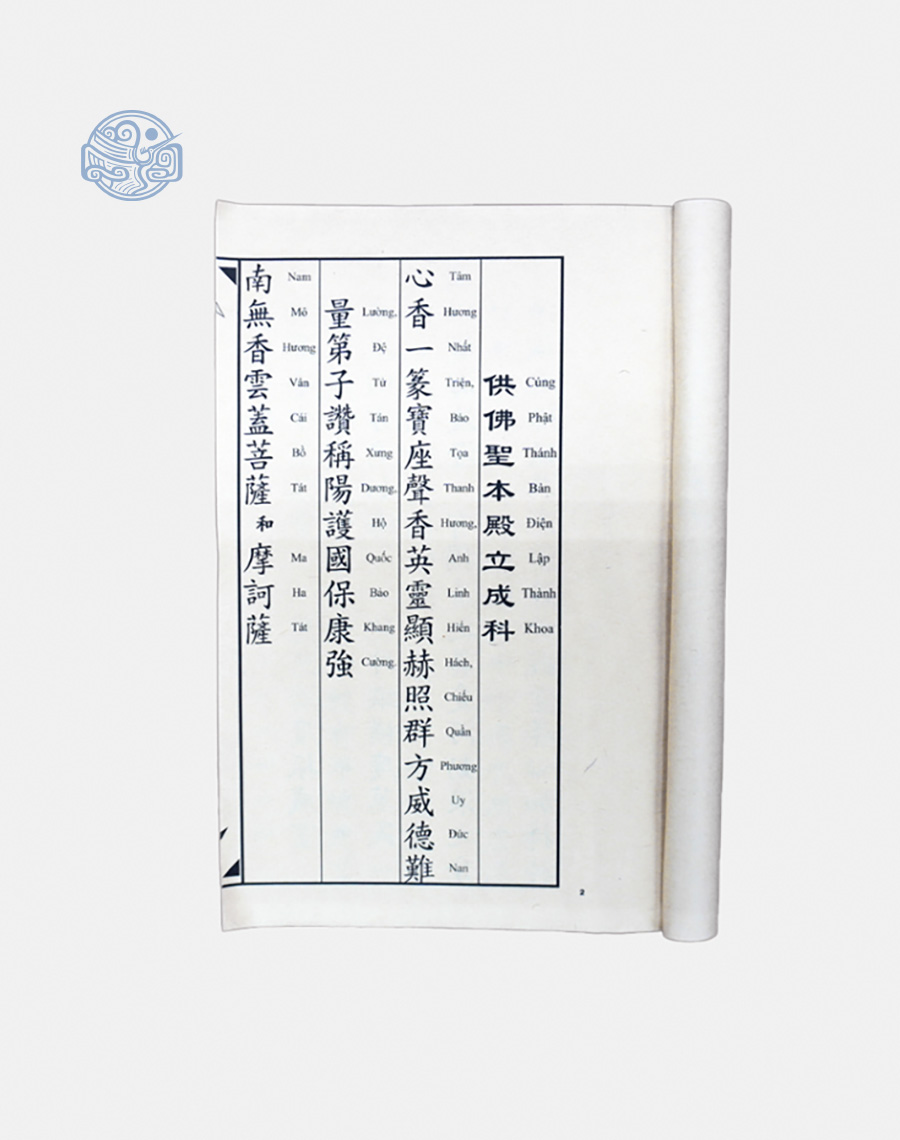 供佛聖本殿立成科
Cúng Phật Thánh Bản Điện Lập Thành Khoa
心香一篆寶座聲香英靈顯赫照群方威德難
Tâm Hương Nhất Triện, Bảo Tọa Thanh Hương, Anh Linh Hiển Hách, Chiếu Quần Phương Uy Đức Nan
量第子讚稱陽護國保康強
Lường, Đệ Tử Tán Xưng Dương, Hộ Quốc Bảo Khang Cường.
南無香雲蓋菩薩和摩訶薩
Nam Mô Hương Vân Cái Bồ Tát Ma Ha Tát
2